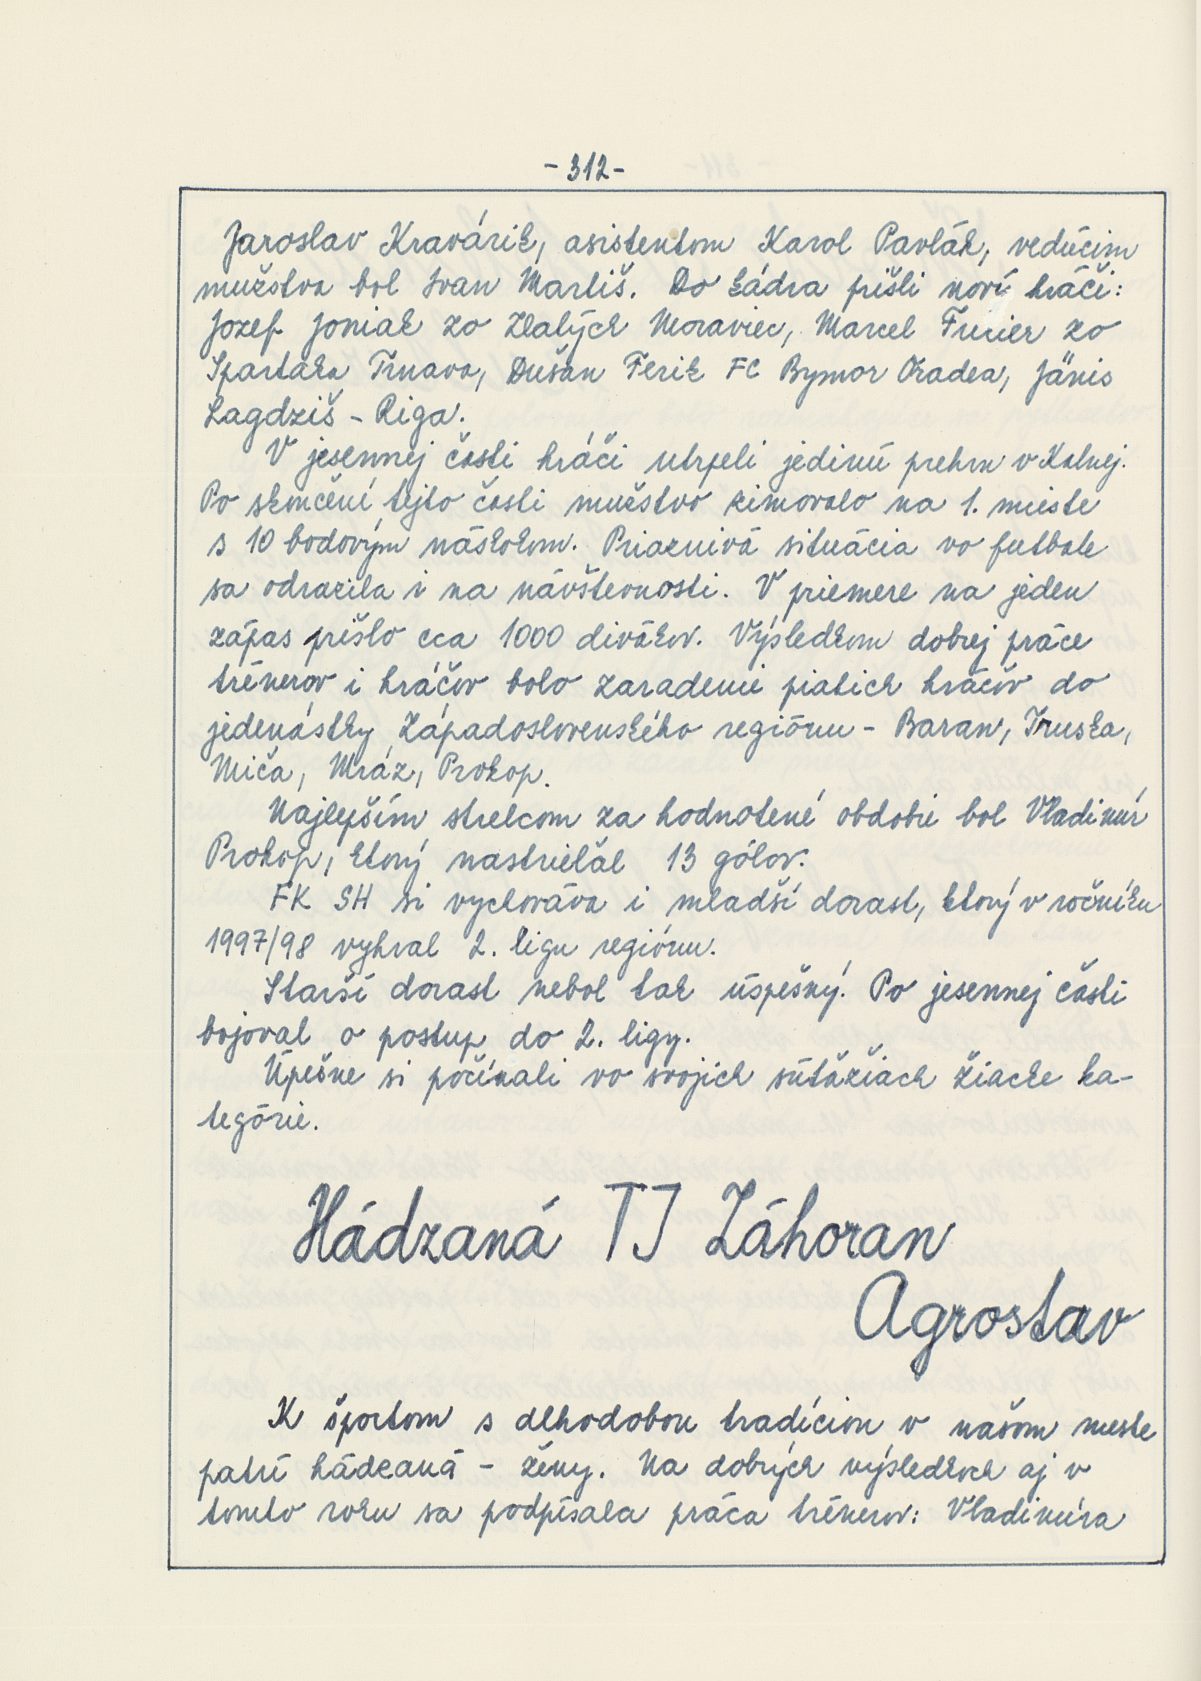 - 312 -
Jaroslav Kravárik, asistentom Karol Pavlák, vedúcim
mužstva bol Ivan Marliš. Do kádra prišli noví hráči:
Jozef Joniak zo Zlatých Moraviec, Marcel Fucier zo
Spartaka Trnava, Dušan Ferik FC Bymor Oradea, Jänis
Lagdziš - Riga.
V jesennej časti hráči utrpeli jedinú prehru v Kalnej.
Po skončení tejto časti mužstvo zimovalo na 1. mieste
s 10 bodovým náskokom. Priaznivá situácia vo futbale
sa odrazila i na návštevnosti. V priemere na jeden
zápas prišlo cca 1000 divákov. Výsledkom dobrej práce
trénerov i hráčov bolo zaradenie piatich hráčov do
jedenástky Západoslovenského regiónu - Baran, Truska,
Miča, Mráz, Prokop.
Najlepším strelcom za hodnotené obdobie bol Vladimír
Prokop, ktorý nastrieľal 13 gólov.
FK SH si vychováva i mladší dorast, ktorý v ročníku
1997/98 vyhral 2. ligu regiónu.
Starší dorast nebol tak úspešný. Po jesennej časti
bojoval o postup do 2. ligy.
Úpešne si počínali vo svojich súťažiach žiacke ka-
tegórie.
Hádzaná TJ Záhoran
Agrostav
K športom s dlhodobou tradíciou v našom meste
patrí hádzaná - ženy. Na dobrých výsledkoch aj v
tomto roku sa podpísala práca trénerov: Vladimíra